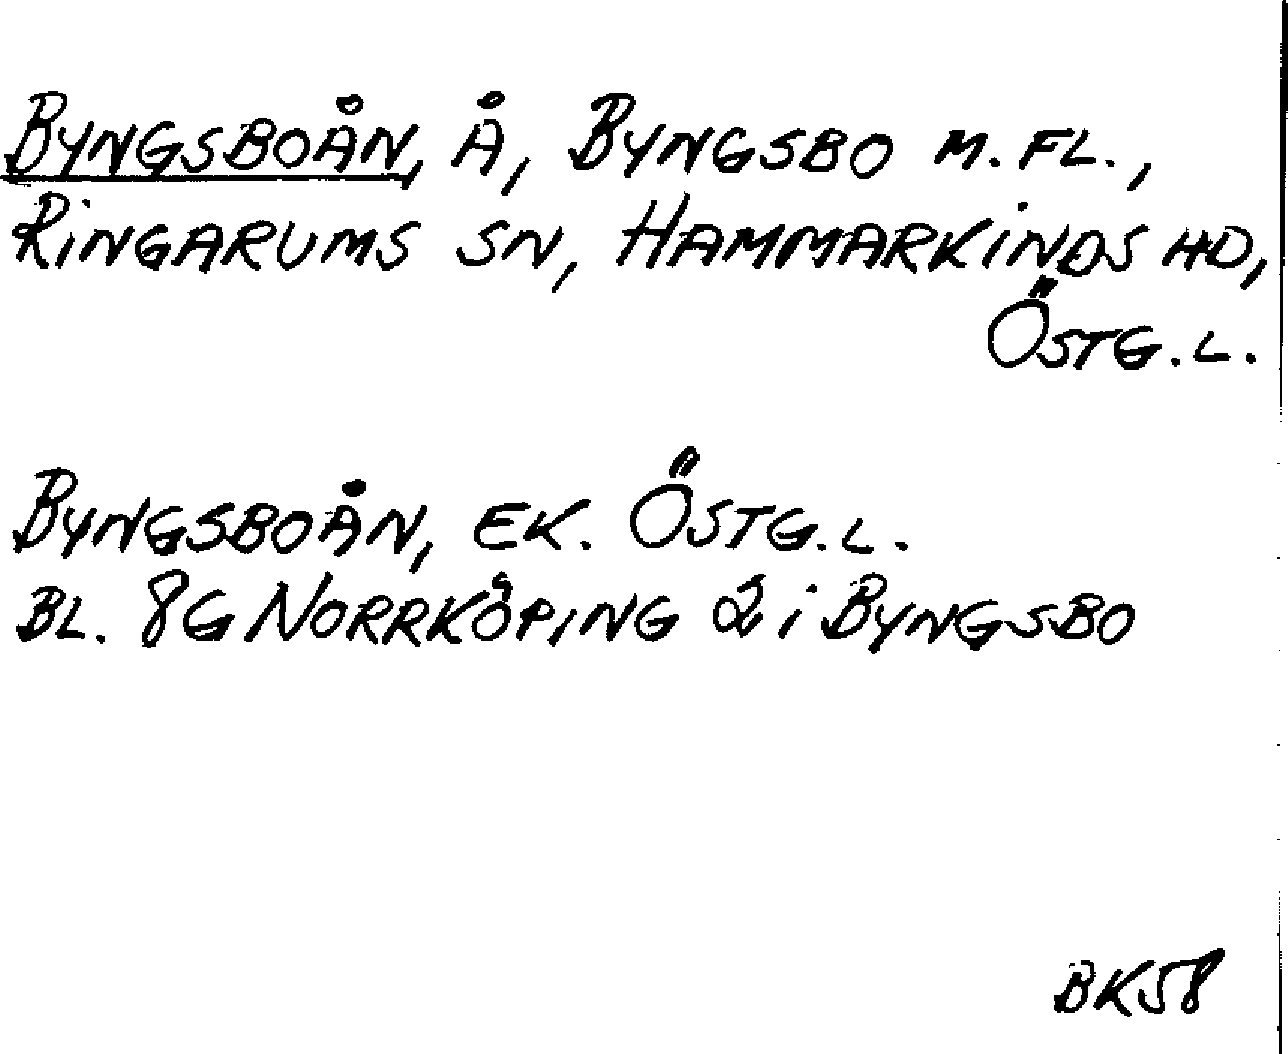 BYNGSBOÅN, Å, BYNGSBO M. FL.,
RINGARUMS SN, HAMMARKINDS HD,
ÖSTG. L.
BYNGSBOÅN, EK. ÖSTG. L.
BL. 8G NORRKÖPING 2 i BYNGSBO
BK58